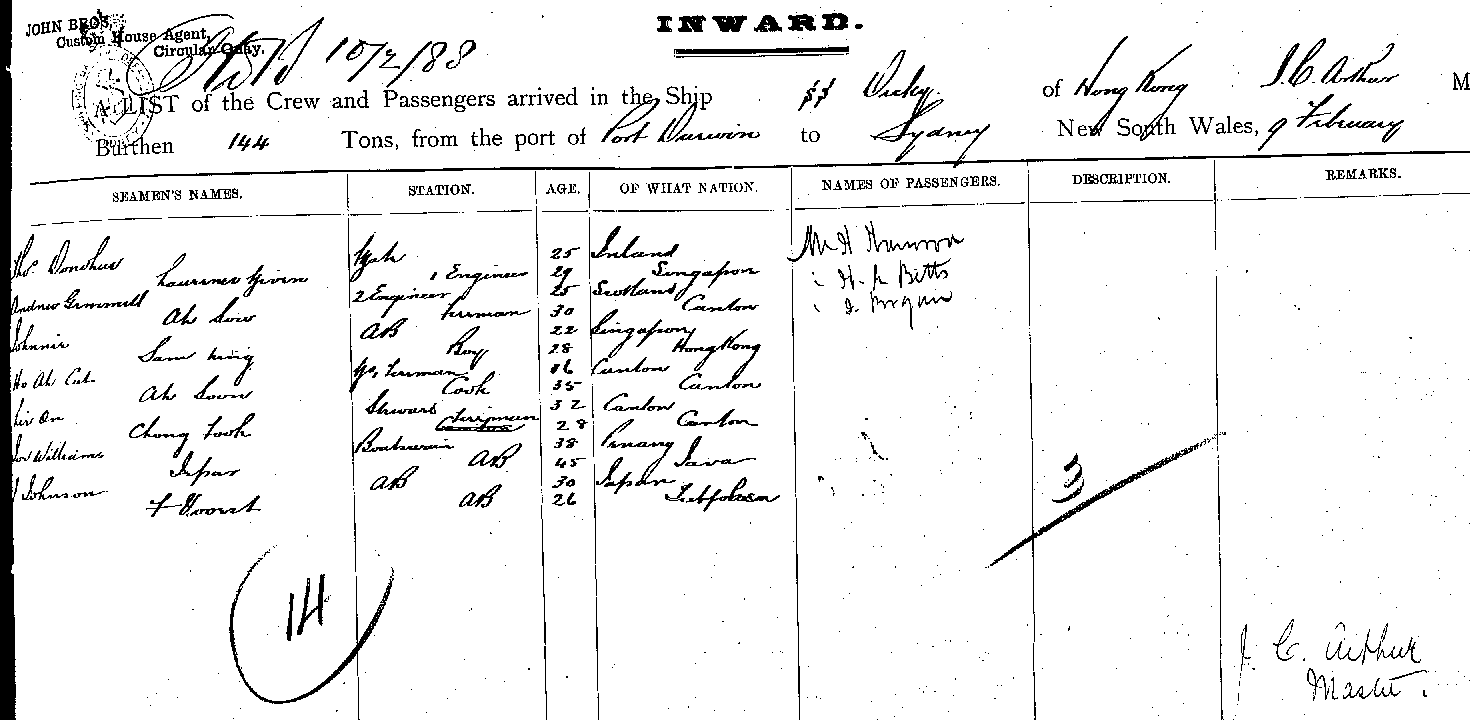 INWARD.
JOHN BROS,
Custom House Agent,
Circular Quay.
10/2/88
A LIST of the Crew and Passengers arrived in the Ship SS Vicky. of Hong Kong J. C. Arthur M
Burthen 144 Tons, from the port of Port Darwin to Sydney New South Wales, 9 February
SEAMEN'S NAMES. STATION. AGE. OF WHAT NATION. NAMES OF PASSENGERS. DESCRIPTION. REMARKS.
Thos Donohue 25 Ireland Mr H
Laurence Given 1 Engineer 29 Singapore " H. Betts
Andrew Gemmell 2 Engineer 25 Scotland "
Ah Sow Fireman 30 Canton
Johnnie AB 22 Singapore
Sam King Boy 28 Hong Kong
Ho Ah Cut Fireman 16 Canton
Ah Soon Cook 35 Canton
Steward 32 Canton
Chong Fook Fireman 28 Canton
Williams Boatswain 38 Penang
Jepar AB 45 Java
Johnson AB 30 Japan
AB 26
14
3
J. C. Arthur
Master.